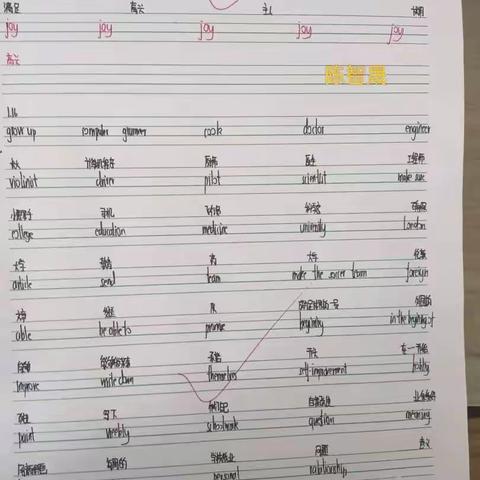 满足 高兴 主人 说明
joy joy joy joy joy
高兴
陈智果
1.16
grow up computer grammer cook doctor engineer
长大 计算机程序 厨师 医生 工程师
violinist driver pilot scientist make sure
小提琴手 司机 飞行员 科学家 确保
college education medicine university London
大学 教育 药 大学 伦敦
article send team make the soccer team foreign
文章 发送 队 外国的
able be able to promise beginning in the beginning of
能够 能够做某事 承诺 开头 在…开始
improve write down themselves self-improvement hobby
改进 写下 他们自己 自我改进 业余爱好
paint weekly schoolwork question meaning
每周的 学校作业 问题 意义
personal relationship